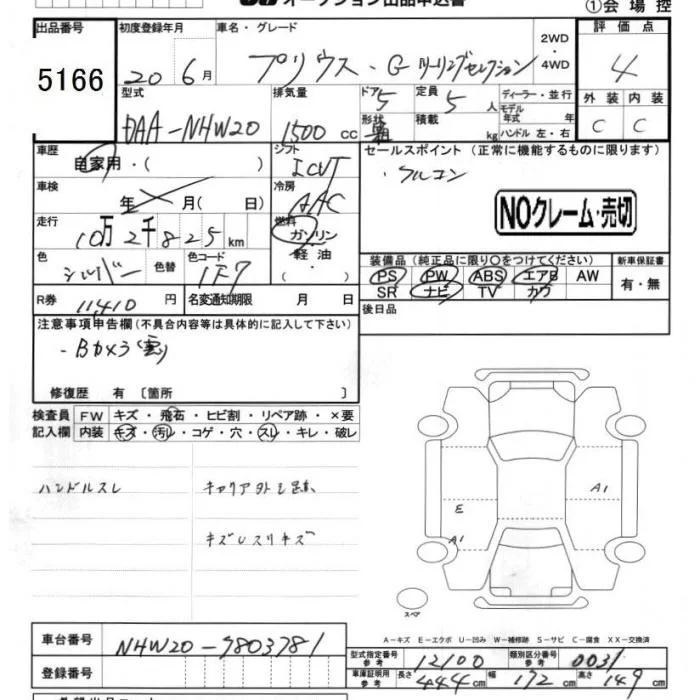 オークション出品申込書
①会場控
出品番号
5166
初度登録年月
20 6月
車名・グレード
プリウス・G ツーリングセレクション
2WD・4WD
評価点
4
外装 内装
C C
型式
DAA-NHW20
排気量
1500cc
ドア 5
定員 5人
形状
積載 kg
ディーラー・並行
モデル年式 年
ハンドル 左・右
車歴
自家用・( )
シフト
ICVT
セールスポイント(正常に機能するものに限ります)
・フルコン
NOクレーム・売切
車検
年 月( 日)
冷房
AAC
走行
10万2千825km
燃料
ガソリン
軽油
・( )
色
シルバー
色替
色コード
1F7
装備品(純正品に限り○をつけてください)
PS PW ABS エアB AW
SR ナビ TV カワ
新車保証書
有・無
R券
11410円
名変通知期限 月 日
後日品
注意事項申告欄(不具合内容等は具体的に記入して下さい)
修復歴 有〔箇所 〕
検査員記入欄
FW キズ・飛石・ヒビ割・リペア跡・×要
内装 キズ・汚レ・コゲ・穴・スレ・キレ・破レ
ハンドルスレ
キズ スリキズ
A1
E
A1
スペア
A－キズ E－エクボ U－凹み W－補修跡 S－サビ C－腐食 XX－交換済
車台番号
NHW20-7803781
登録番号
型式指定番号 参考
12100
類別区分番号 参考
0031
車庫証明用 参考
長さ 444cm 幅 172cm 高さ 149cm